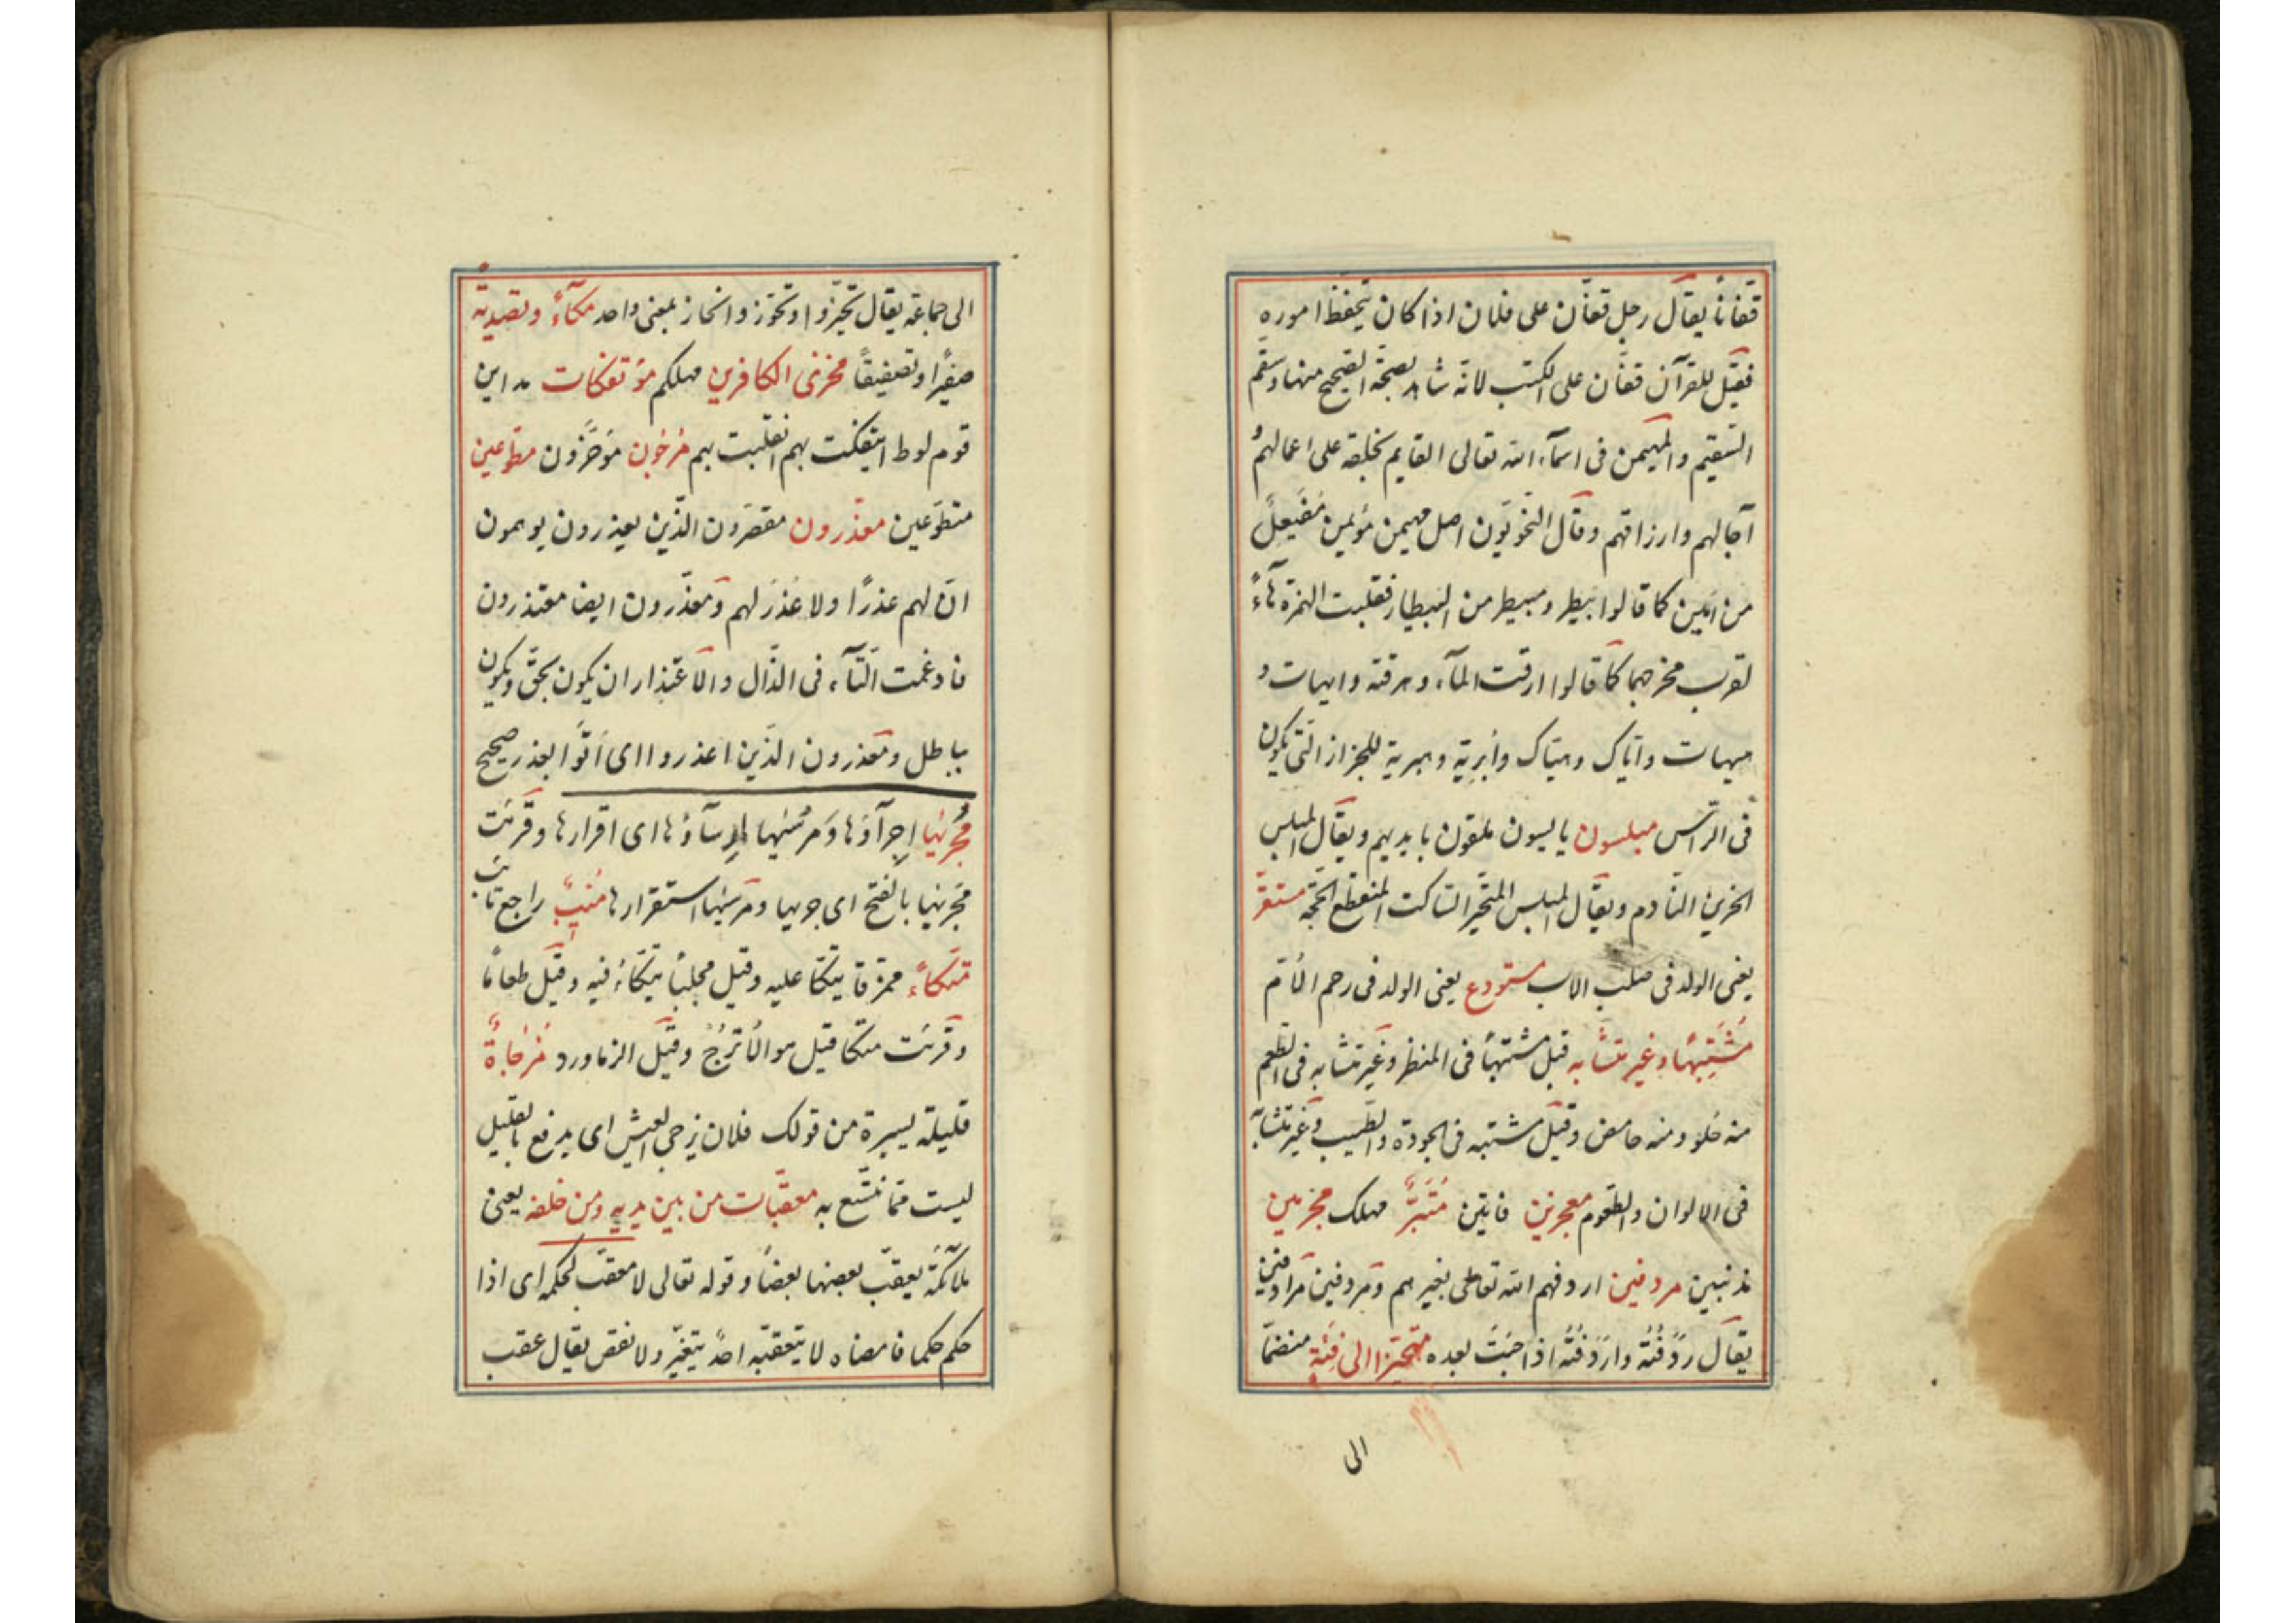 قفّانًا يقال رجل قفّان على فلان اذا كان يتحفظ اموره
فقيل للقرآن قفّان على الكتب لانه شاهد بصحّة الصّحيح منها وسقم
السّقيم والمهيمن فى اسمآء الله تعالى القايم بخلقه على اعمالهم و
آجالهم وارزاقهم وقال النّحويّون اصل مهيمن مؤيمن مفيعل
من امين كما قالوا بيطر ومبيطر من البيطار فقلبت الهمزة هآءً
لقرب مخرجهما كما قالوا ارقت المآء وهرقته وايهات و
هيهات واياك وهيّاك وأبرية وهبرية للحزاز الّتى يكون
فى الرأس مبلسون يائسون ملقون بايديهم ويقال المبلس
الحزين النّادم ويقال المبلس المتحيّر السّاكت المنقطع الحجّة مستقرّ
يعنى الولد فى صلب الاب مستودع يعنى الولد فى رحم الأمّ
مشتبهًا وغير متشابه قيل مشتبهًا فى المنظر وغير متشابه فى الطّعم
منه حلو ومنه حامض وقيل مشتبه فى الجودة والطّيب وغير متشابه
فى الالوان والطّعوم معجزين فايتين متبّر مهلك مجرمين
مذنبين مردفين اردفهم الله تعالى بغيرهم ومردفين مرادفين
يقال ردفته واردفته اذا جئت بعده متحيّزا الى فئة منضمّا
الى
الى جماعة يقال تحيّز واو تحوّز وانحاز بمعنى واحد مكآءً وتصدية
صفيرًا وتصفيقًا مخزى الكافرين مهلكهم مؤتفكات مداين
قوم لوط ايتفكت بهم انقلبت بهم مرجون مؤخّرون مطّوعين
متطوّعين معذّرون مقصّرون الّذين يعذرون يوهمون
انّ لهم عذرًا ولا عذر لهم ومعذّرون ايضا معتذرون
فادغمت التّآء فى الذّال والاعتذار ان يكون بحقّ ويكون
بباطل ومعذرون الّذين اعذروا اى اتوا بعذر صحيح
مجريها اجرآؤها ومرسيها ارسآؤها اى اقرارها وقرئت
مجريها بالفتح اى جريها ومرسيها استقرارها منيب راجع تائب
متّكاءً نمرقا يتّكا عليه وقيل مجلسًا يتّكاء فيه وقيل طعامًا
وقرئت متكا قيل هو الأترجّ وقيل الزماورد مزجاة
قليلة يسيرة من قولك فلان يزجى العيش اى يدفع بالقليل
ليست ممّا نتّسع به معقّبات من بين يديه ومن خلفه يعنى
ملآئكة يعقّب بعضها بعضًا وقوله تعالى لا معقّب لحكمه اى اذا
حكم حكما فامضاه لا يتعقّبه احد بتغيّر ولا نقص يقال عقب